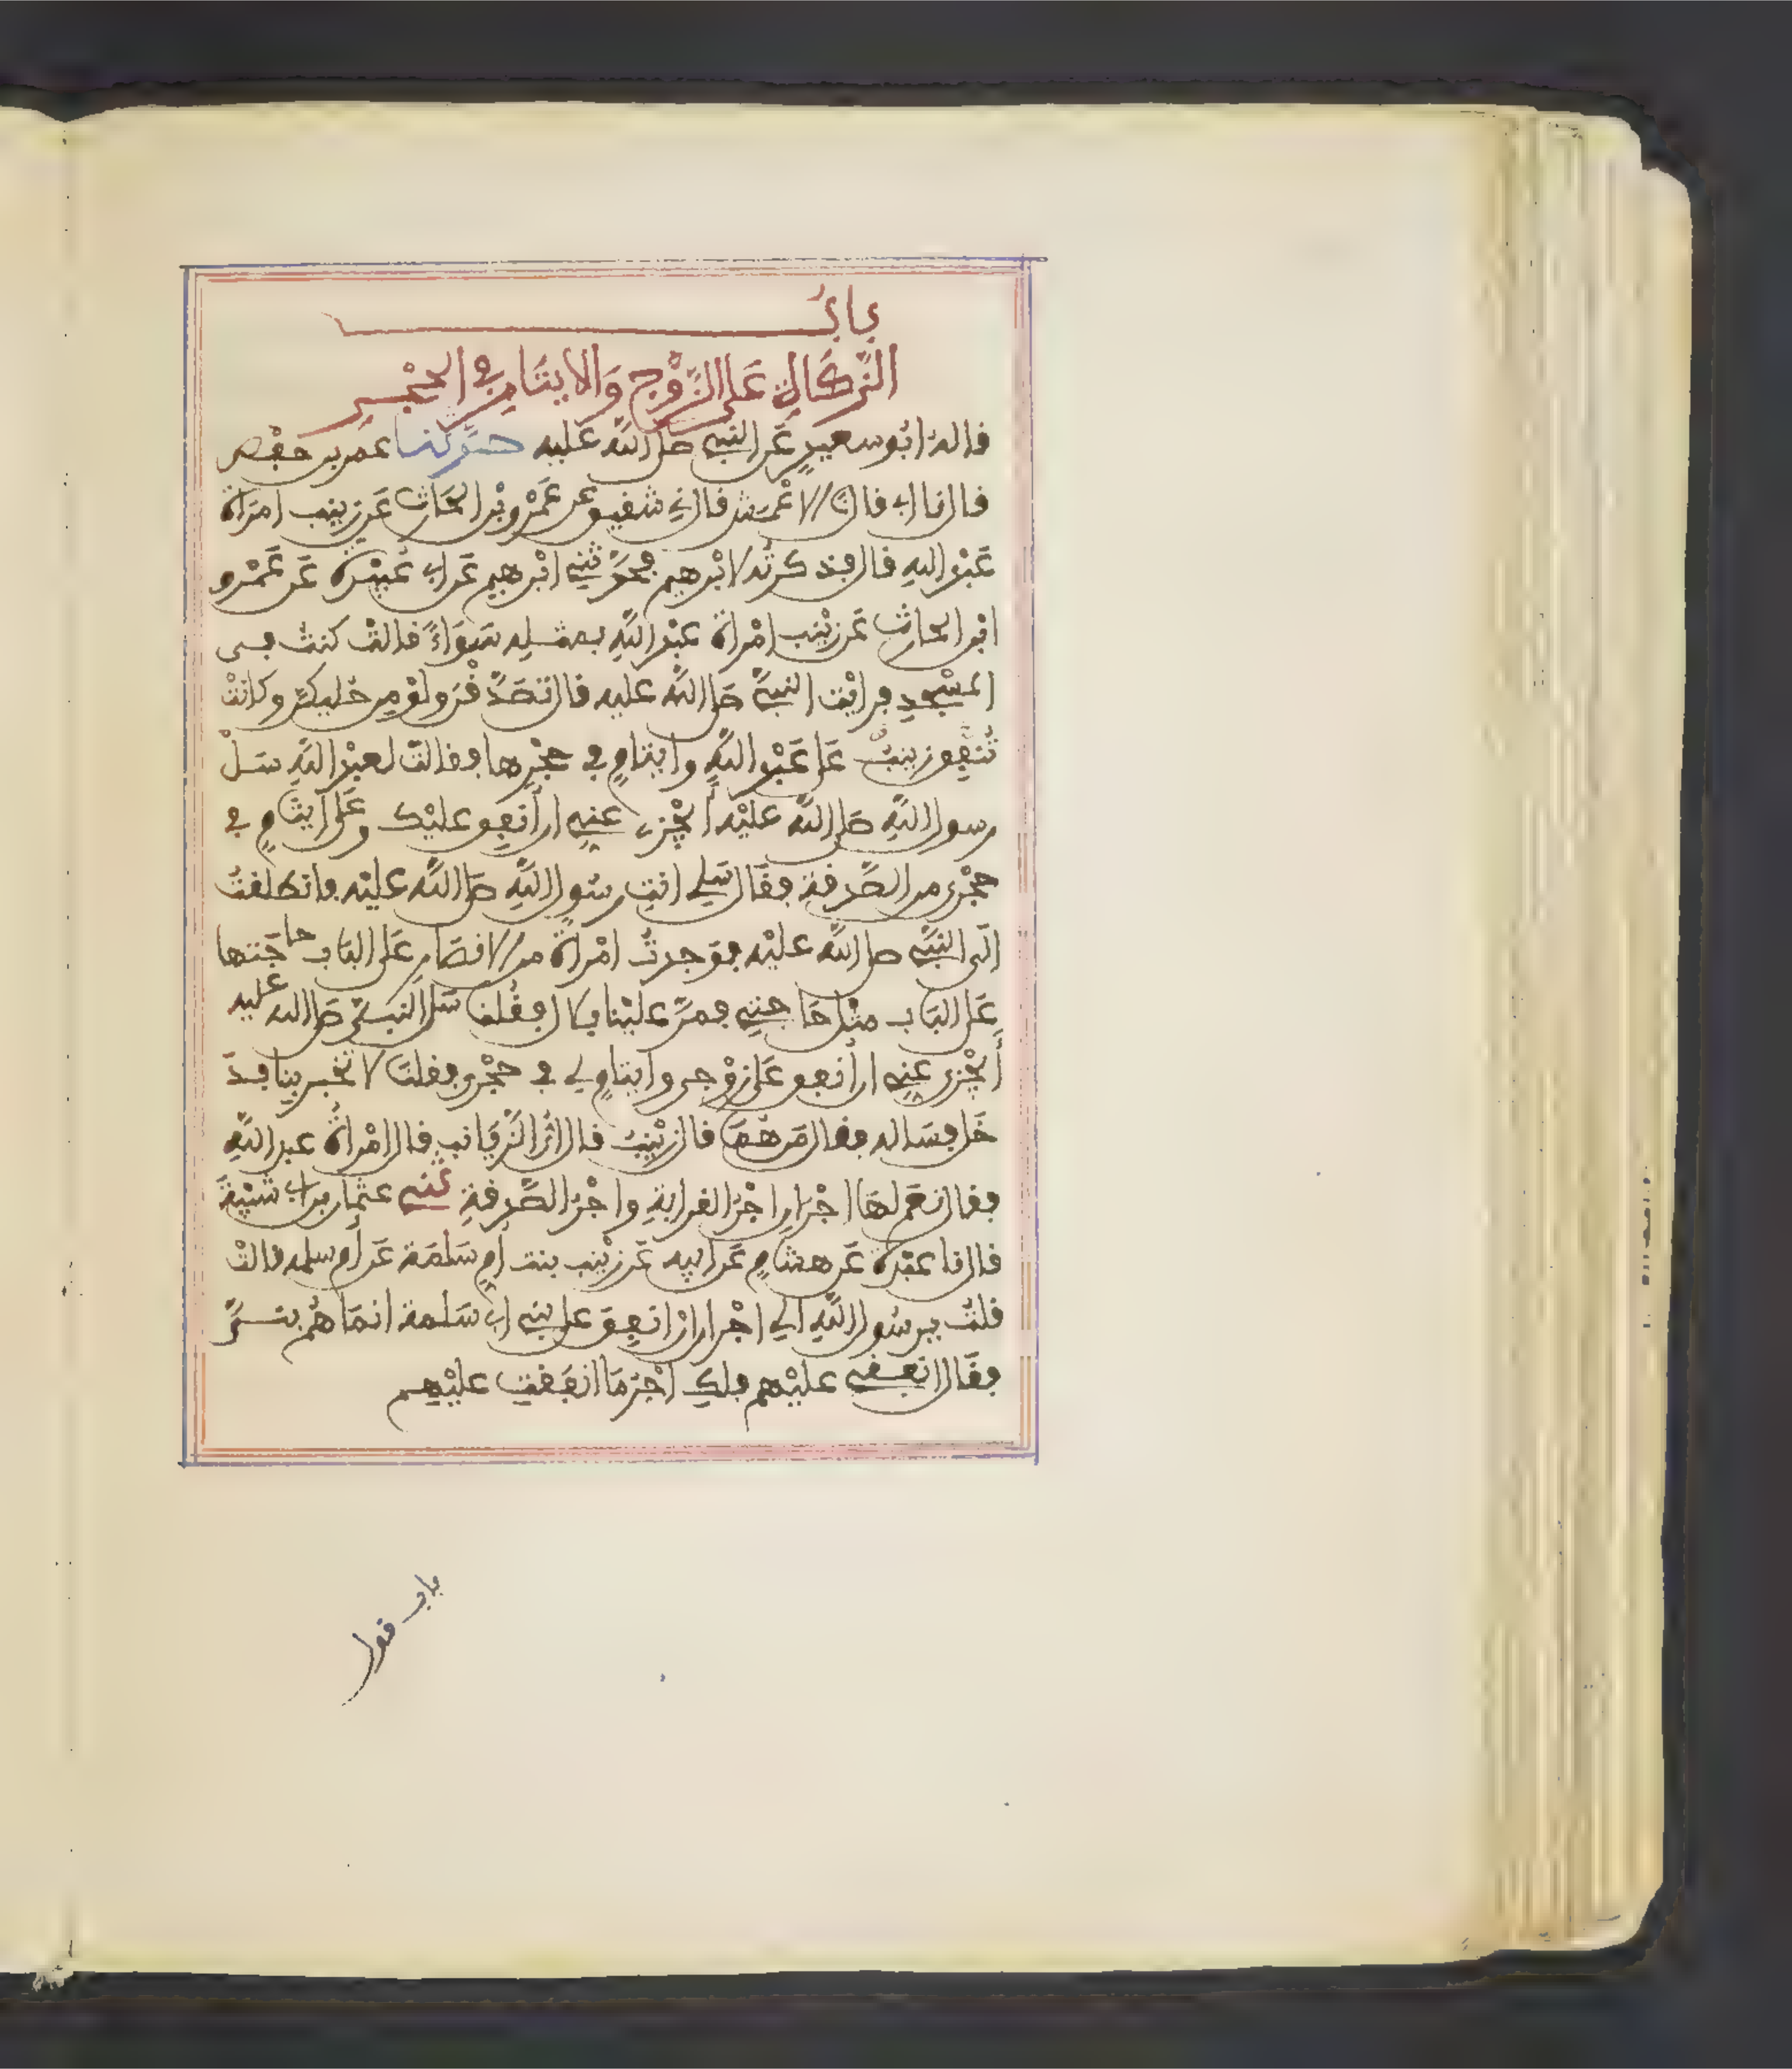 باب
الزكاة على الزوج والايتام في الحجر
قاله ابو سعيد عن النبي صلى الله عليه حدثنا عمر بن حفص
قال نا ابي قال نا الاعمش قال ني شفيق عن عمرو بن الحارث عن زينب امراة
عبد الله قال فذكرته لابرهيم فحدثني ابرهيم عن ابي عبيدة عن عمرو
ابن الحارث عن زينب امراة عبد الله بمثله سواء قالت كنت في
المسجد فرايت النبي صلى الله عليه قال تصدقن ولو من حليكن وكانت
تنفق زينب على عبد الله وايتام في حجرها فقالت لعبد الله سل
رسول الله صلى الله عليه أيجزي عني ان أنفق عليك وعلى ايتام في
حجري من الصدقة فقال سلي انت رسول الله صلى الله عليه فانطلقت
الى النبي صلى الله عليه فوجدت امراة من الانصار على الباب حاجتها
على الباب مثل حاجتي فمر علينا بلال فقلنا سل النبي صلى الله عليه
أيجزي عني ان أنفق على زوجي وايتام لي في حجري وقلنا لا تخبر بنا فد
خل فساله فقال من هما قال زينب قال اي الزيانب قال امراة عبد الله
فقال نعم لها اجران اجر القرابة واجر الصدقة ثني عثمان بن ابي شيبة
قال نا عبدة عن هشام عن ابيه عن زينب بنت ام سلمة عن أم سلمه قالت
قلت يرسول الله الي اجر ان انفق على بني ابي سلمة انما هم بني
فقال انفقي عليهم فلك اجر ما انفقت عليهم
باب قول